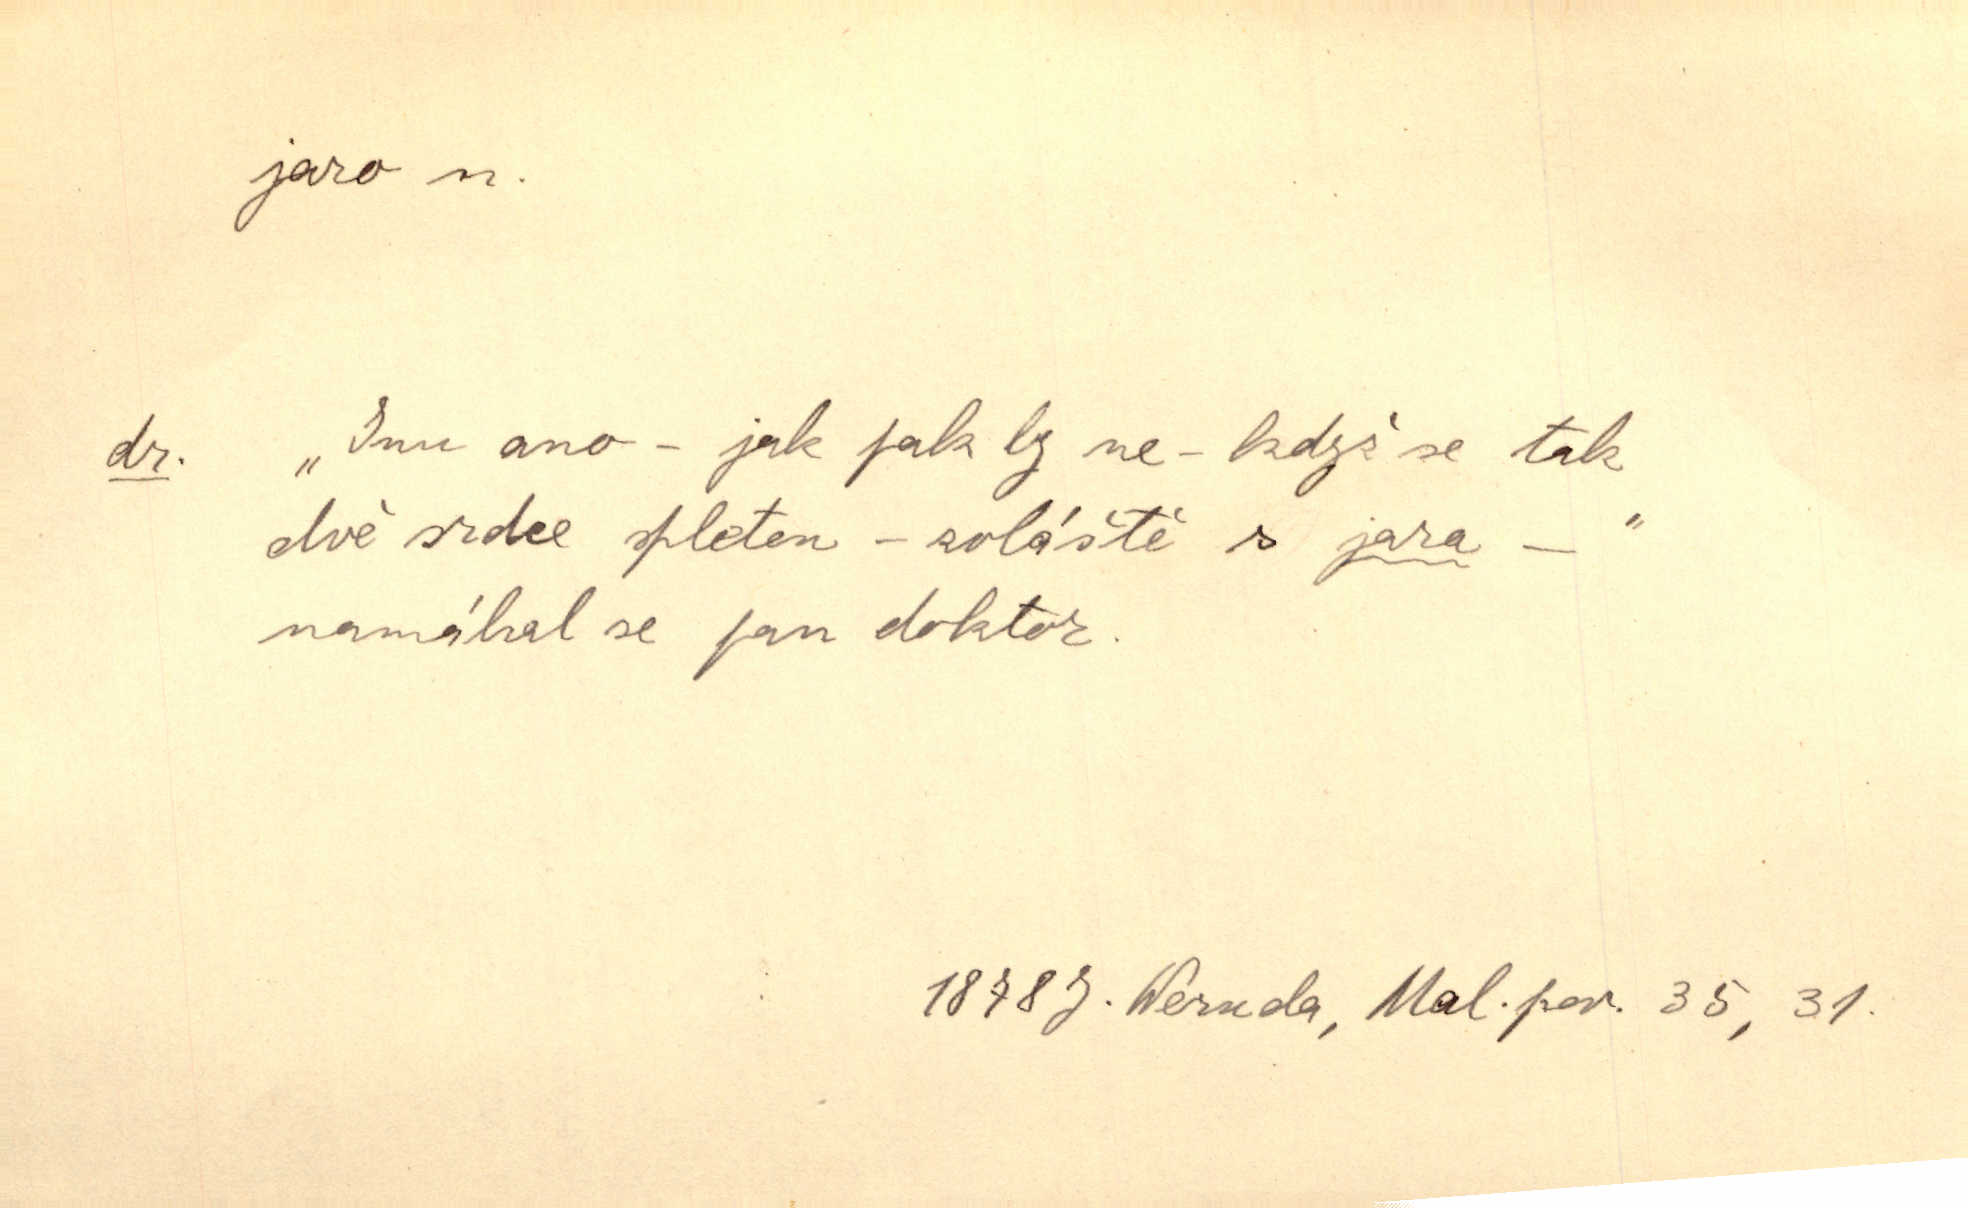 jaro n.
dr. „Inu ano - jak pak by ne - když se tak
dvě srdce spleten - zvláště s jara — "
namáhal se pan doktor.
1878 J. Neruda, Mal. pov. 35, 31.